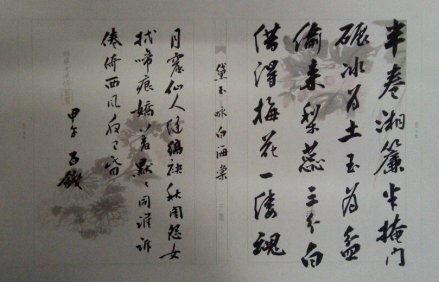 半卷湘簾半掩門
碾冰為土玉為盆
偷來梨蕊三分白
借得梅花一縷魂
黛玉詠白海棠
月窟仙人縫縞袂秋閨怨女
拭啼痕嬌羞默默同誰訴
倦倚西風夜已昏
甲午